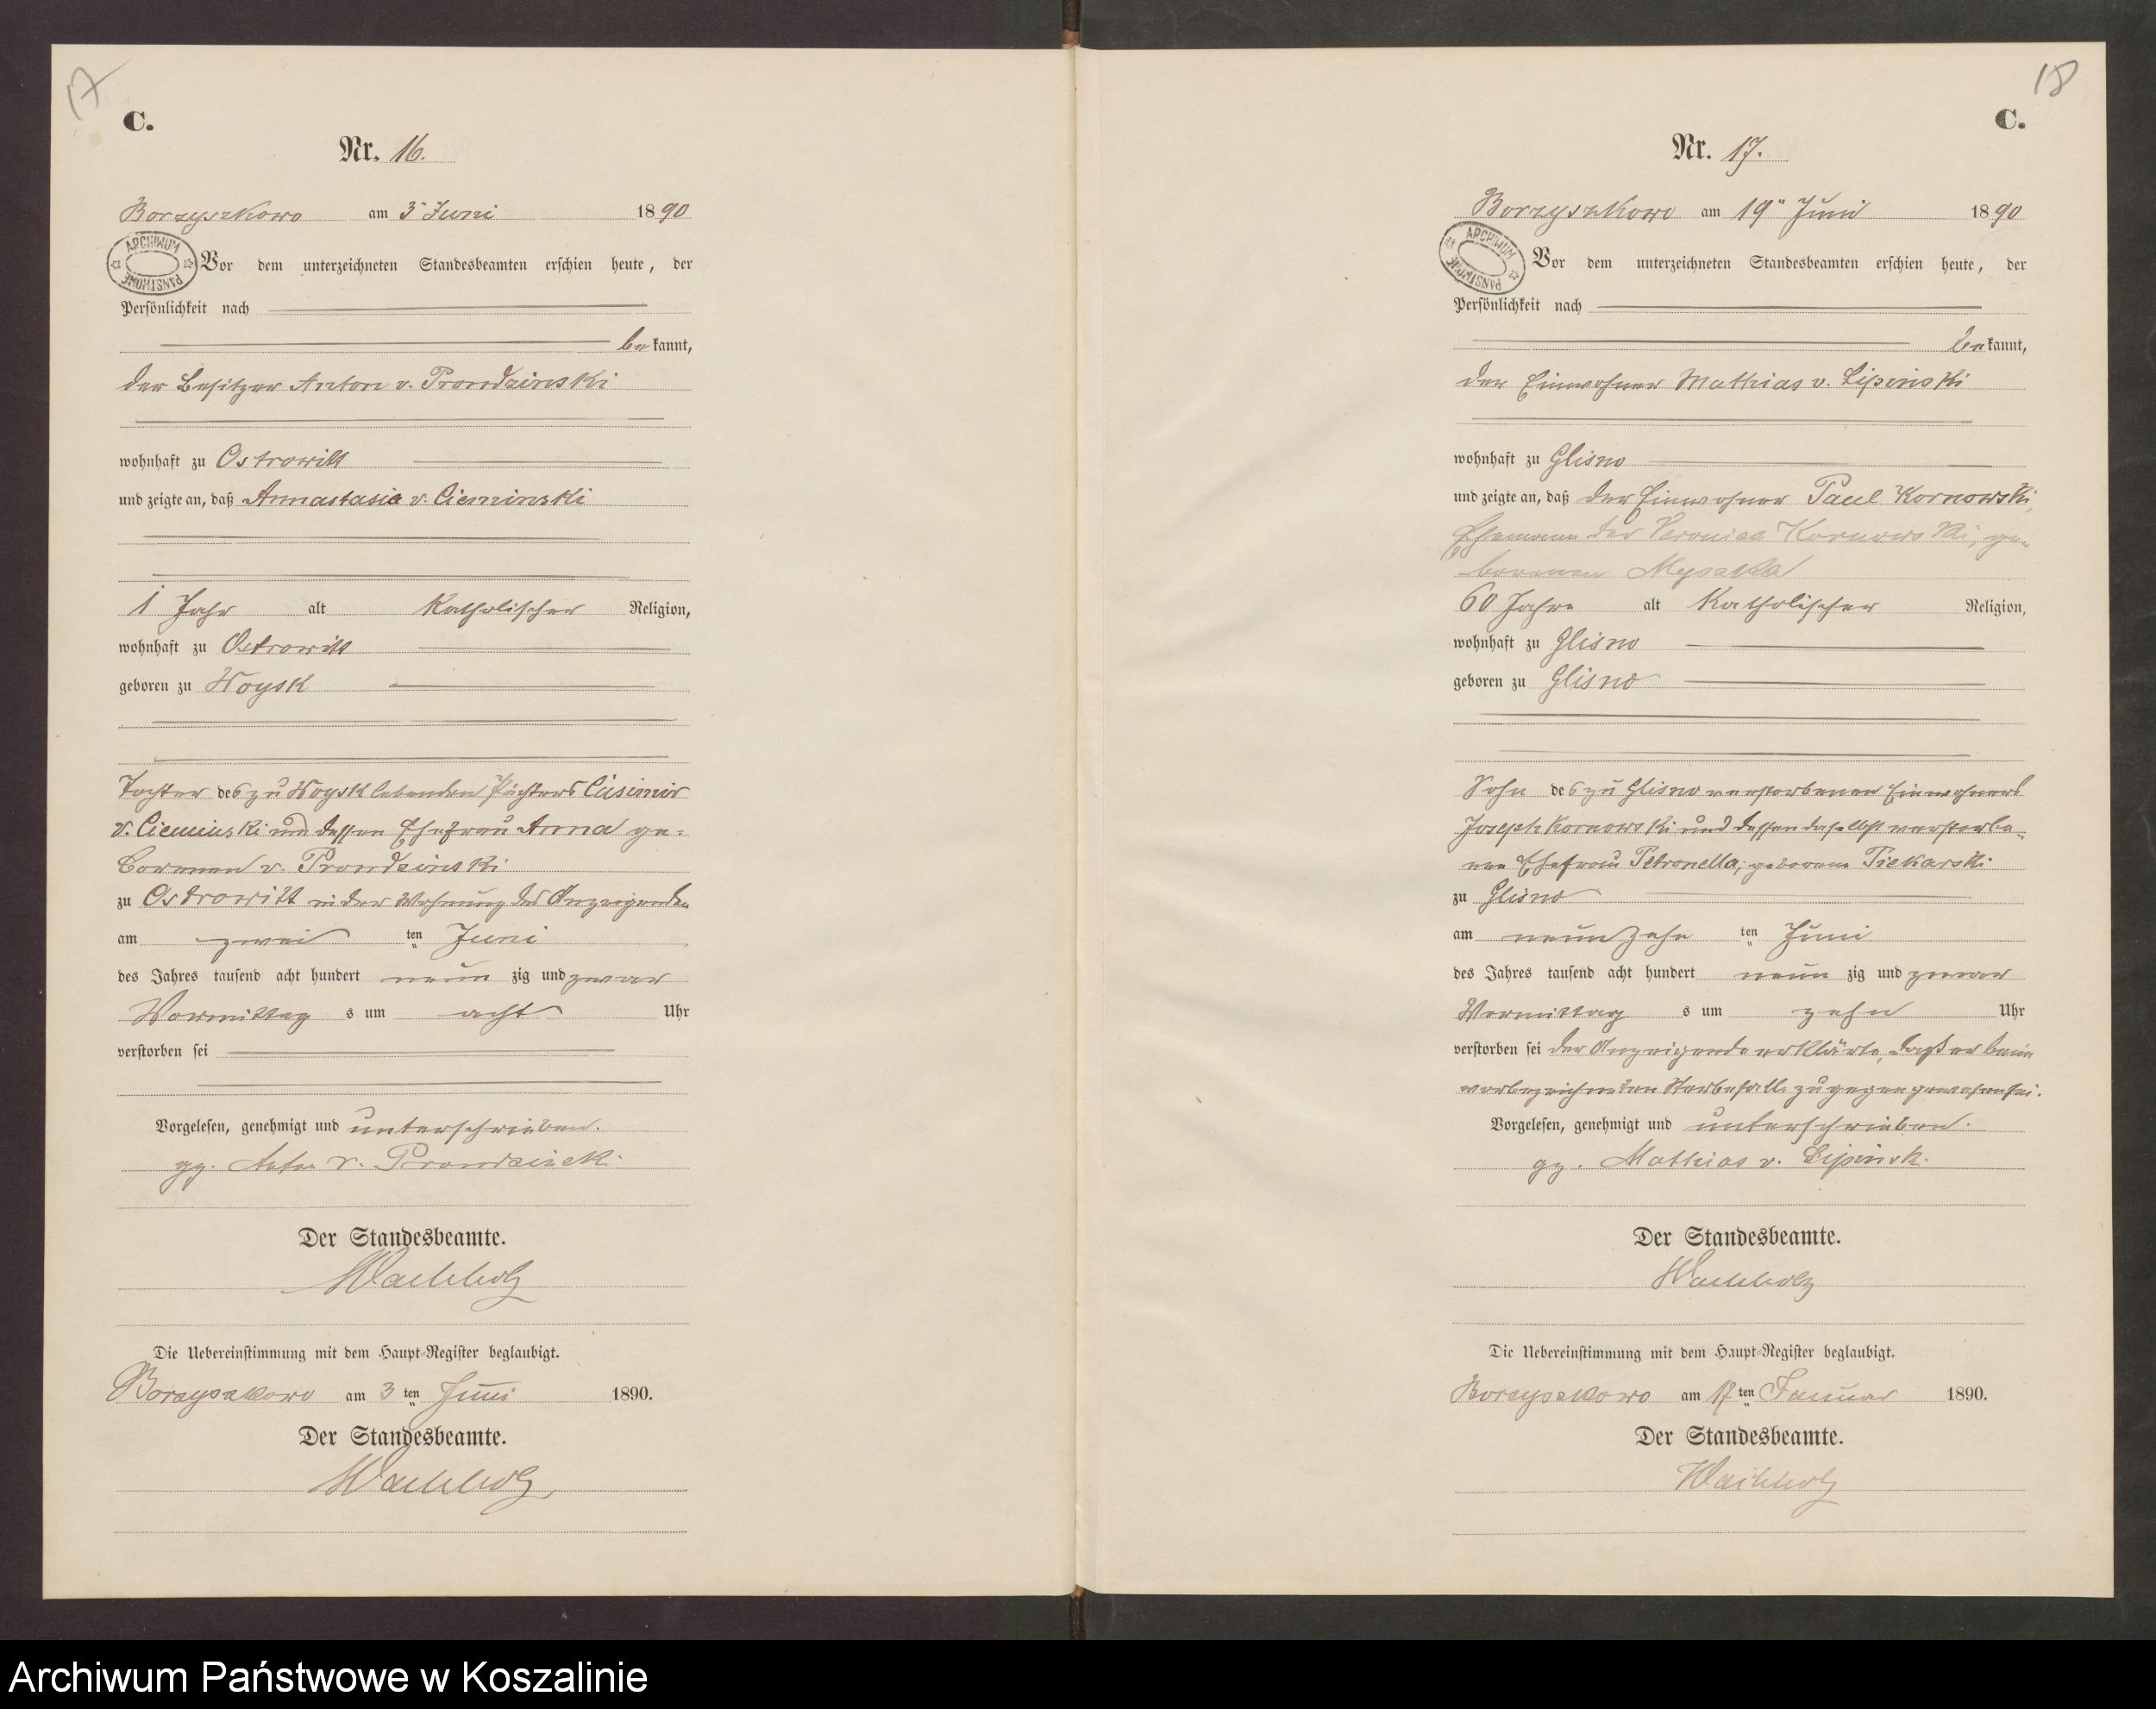 17
C.
Nr. 16.
Borzyszkowo am 3 Juni 1890
ARCHIWUM PAŃSTWOWE
Vor dem unterzeichneten Standesbeamten erschien heute, der
Persönlichkeit nach
bekannt,
der Besitzer Anton v. Prondzinski
wohnhaft zu Ostrowitt
und zeigte an, daß Annastasia v. Cieminski
1 Jahr alt katholischer Religion,
wohnhaft zu Ostrowitt
geboren zu Woysk
Tochter des zu Woysk lebenden Pächters Casimir
v. Cieminski und dessen Ehefrau Anna ge-
borenen v. Prondzinski
zu Ostrowitt in der Wohnung des Anzeigenden
am zwei ten Juni
des Jahres tausend acht hundert neun zig und zwar
Vormittag s um acht Uhr
verstorben sei
Vorgelesen, genehmigt und unterschrieben.
gz. Anton v. Prondzinski
Der Standesbeamte.
Wachholz
Die Uebereinstimmung mit dem Haupt-Register beglaubigt.
Borzyszkowo am 3 ten Juni 1890.
Der Standesbeamte.
Wachholz
18
C.
Nr. 17.
Borzyszkowo am 19" Juni 1890
ARCHIWUM PAŃSTWOWE
Vor dem unterzeichneten Standesbeamten erschien heute, der
Persönlichkeit nach
bekannt,
der Einwohner Mathias v. Lipinski
wohnhaft zu Glisno
und zeigte an, daß der Einwohner Paul Kornowski,
Ehemann der Veronica Kornowski, ge-
borenen Myszka
60 Jahre alt katholischer Religion,
wohnhaft zu Glisno
geboren zu Glisno
Sohn des zu Glisno verstorbenen Einwohners
Joseph Kornowski und dessen daselbst verstorbe-
nen Ehefrau Petronella, geborene Piekarski
zu Glisno
am neunzehn ten Juni
des Jahres tausend acht hundert neun zig und zwar
Vormittag s um zehn Uhr
verstorben sei der Anzeigende erklärte, daß er beim
vorbezeichneten Sterbefalle zugegen gewesen sei.
Vorgelesen, genehmigt und unterschrieben.
gz. Mathias v. Lipinsk.
Der Standesbeamte.
Wachholz
Die Uebereinstimmung mit dem Haupt-Register beglaubigt.
Borzyszkowo am ten Januar 1890.
Der Standesbeamte.
Wachholz
Archiwum Państwowe w Koszalinie